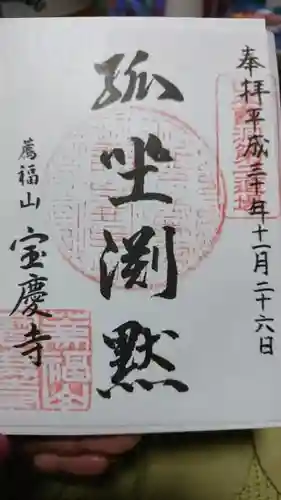 奉拝 平成三十年十一月二十六日
孤坐渕黙
薦福山
宝慶寺